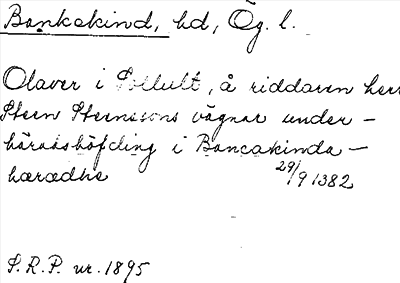 Bankekind, hd, Ög. l.
Olaver i Sollult, å riddaren herr
Sten Stenssons vägnar under-
häradshöfding i Bancakinda-
hæradhe 29/9 1382
S.R.P. nr. 1895